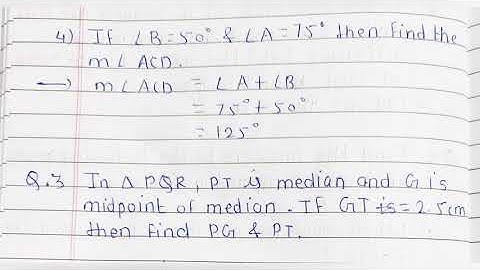 4) If ∠B = 50° & ∠A = 75° then find the
m∠ACD.
→ m∠ACD = ∠A + ∠B
= 75° + 50°
= 125°
Q.3 In Δ PQR, PT is median and G is
midpoint of median. If GT is = 2.5cm
then find PG & PT.